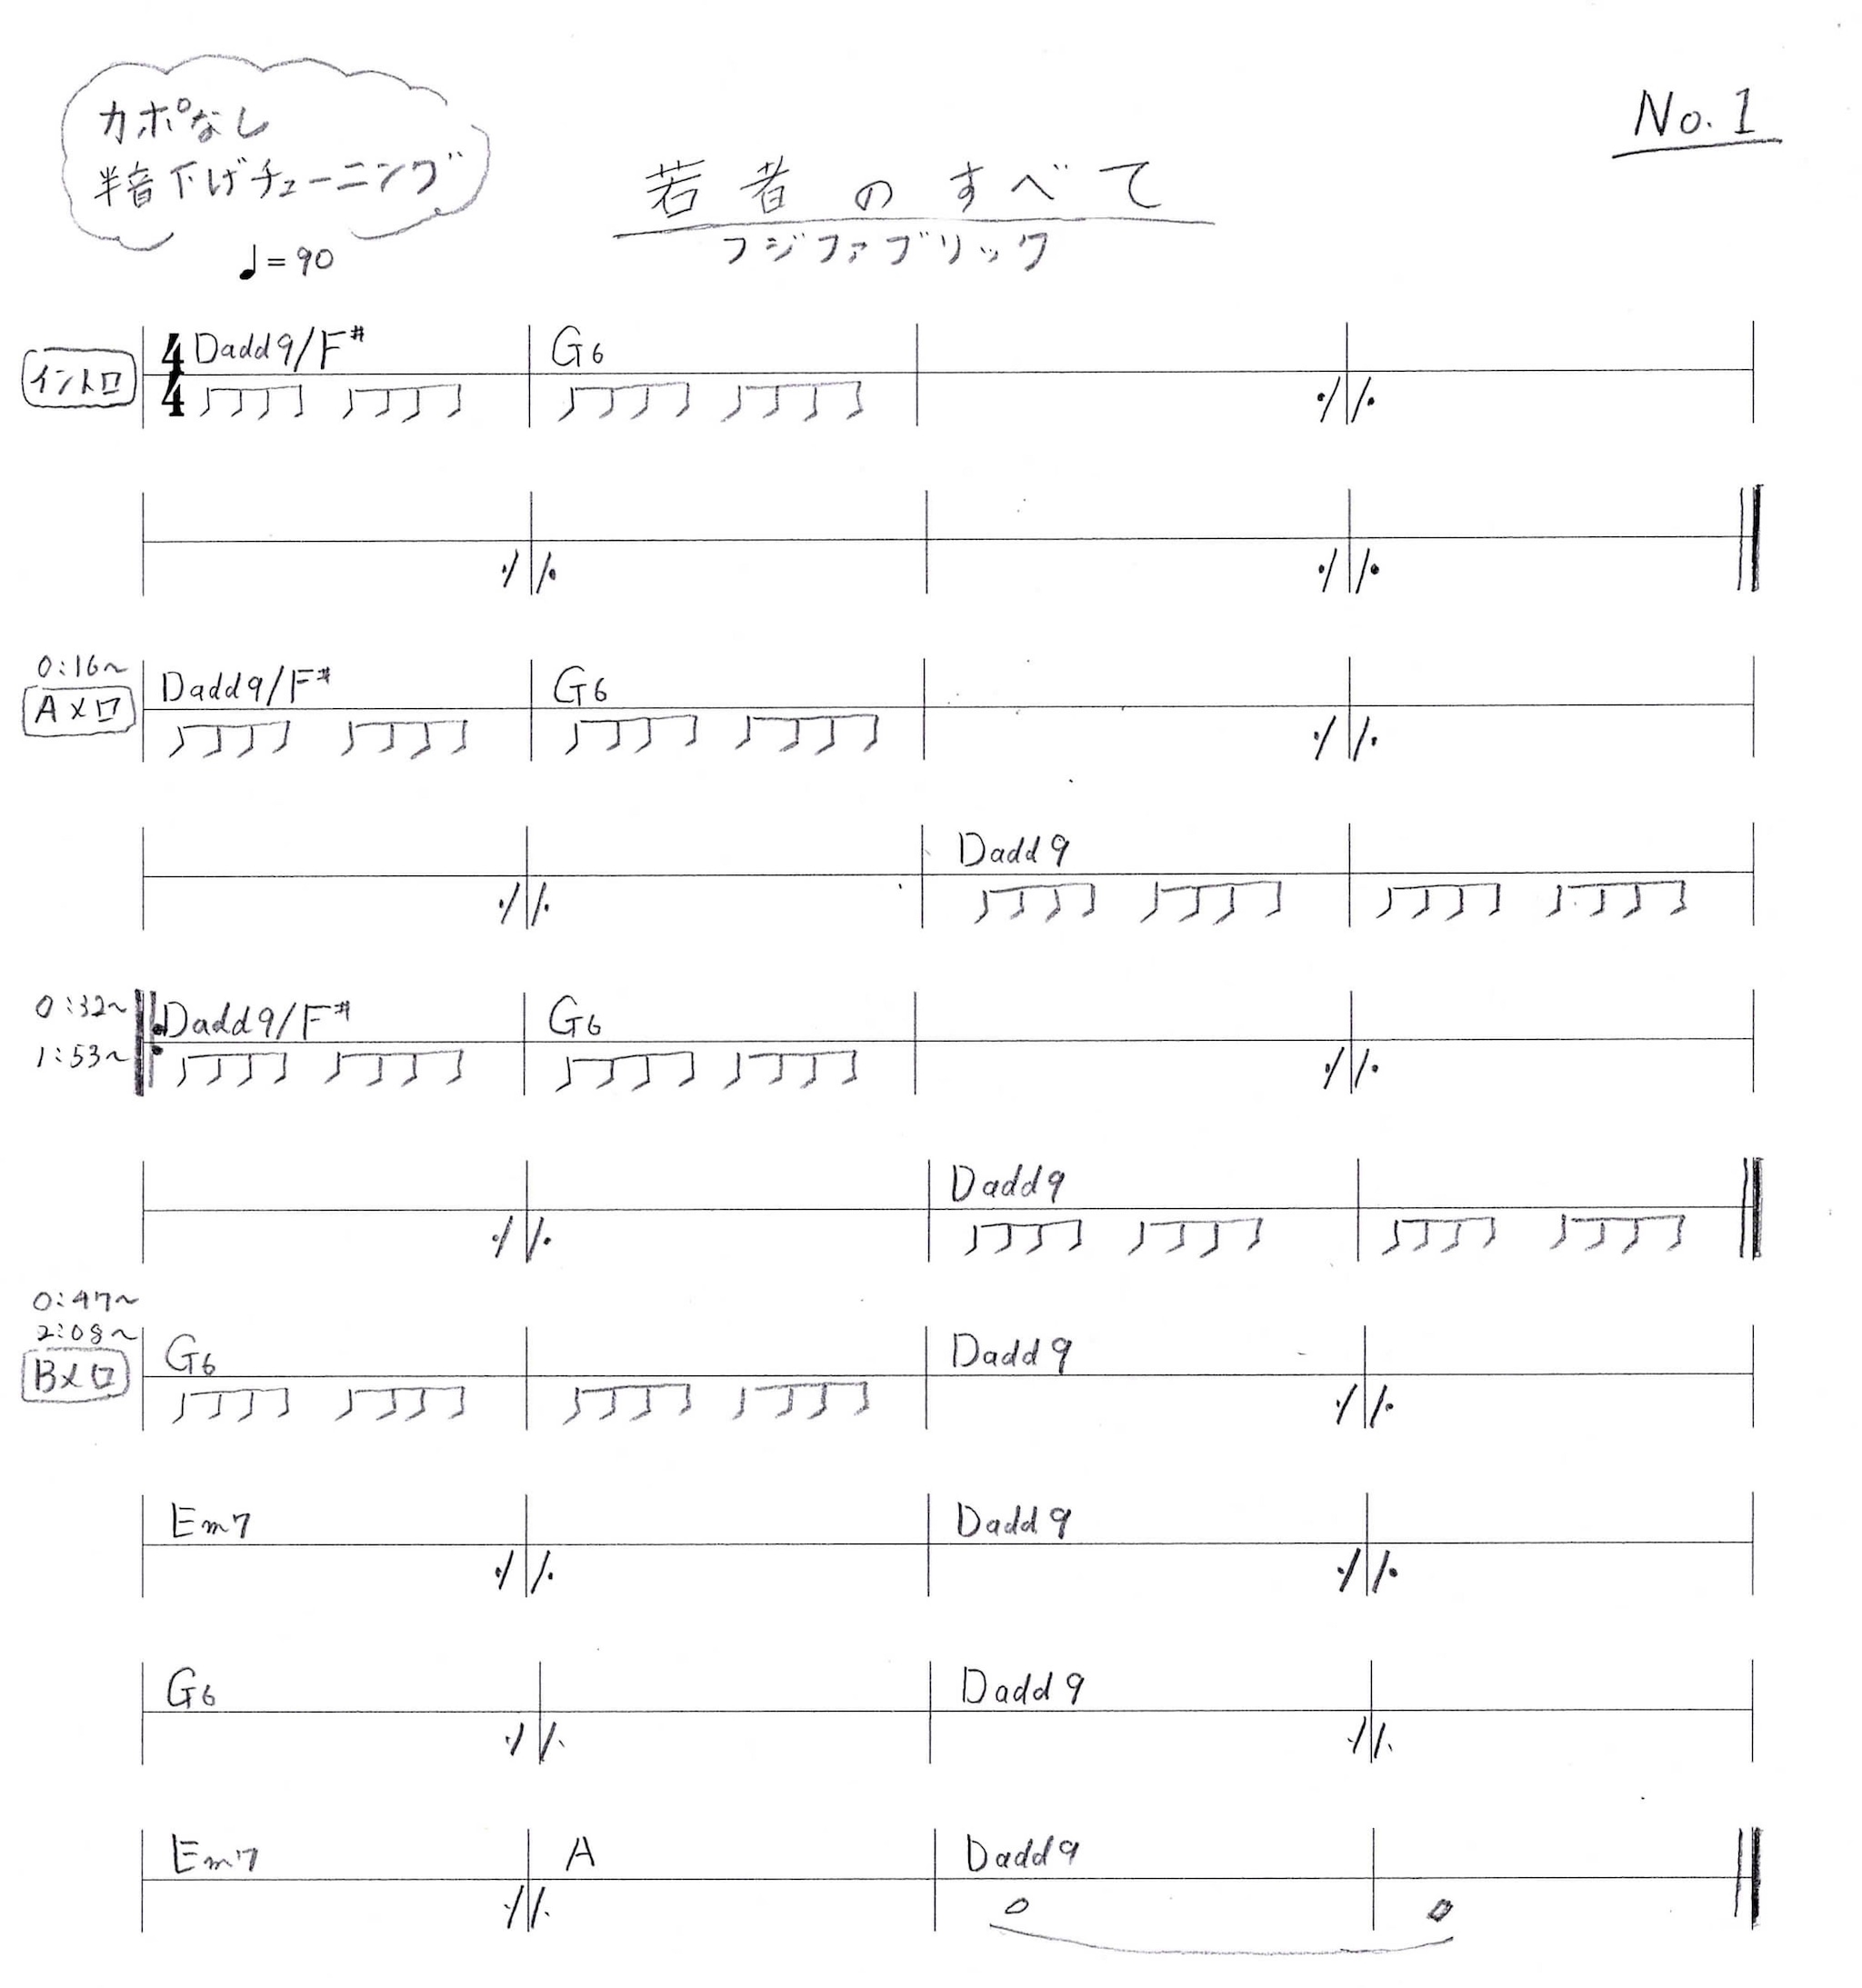 カポなし
半音下げチューニング
No. 1
若者のすべて
フジファブリック
♩=90
イントロ 4/4 Dadd9/F# G6
0:16~
Aメロ Dadd9/F# G6
Dadd9
0:32~ Dadd9/F# G6
1:53~
Dadd9
0:47~
2:08~
Bメロ G6 Dadd9
Em7 Dadd9
G6 Dadd9
Em7 A Dadd9